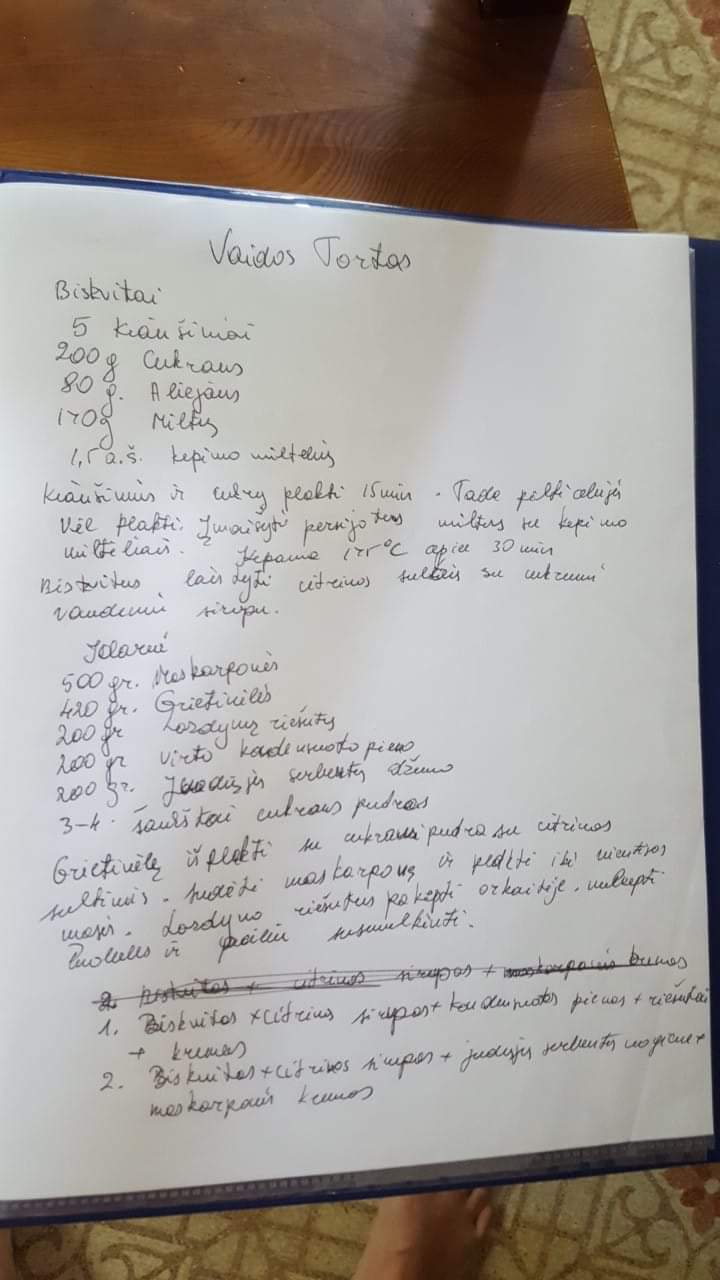 Vaidos Tortas
Biskvitai
5 Kiaušiniai
200 g Cukraus
80 g. Aliejaus
170g Miltų
1,5 a.š. kepimo miltelių
Kiaušinius ir cukrų plakti 15 min. Tada pilti aliejų
Vėl plakti. Įmaišyti persijotus miltus su kepimo
milteliais. Kepama 175°C apie 30 min
Biskvitus laistyti citrinos sultais su cukrumi
vandeniu sirupu.
Įdarui
500 gr. Maskarponės
420 gr. Grietinėlės
200 gr Lazdynų riešutų
200 gr virto kondensuoto pieno
200 gr. Juodųjų serbentų džemo
3-4 šaukštai cukraus pudros
Grietinėlę išplakti su cukraus pudra su citrinos
sultimis. sudėti maskarponę ir plakti iki vientisos
masės. Lazdyno riešutus pakepti orkaitėje. nulupti
luobeles ir susmulkinti.
2. Biskvitas + citrinos sirupas + maskarponės kremas
1. Biskvitas + citrinos sirupas + kondensuotas pienas + riešutai
+ kremas
2. Biskvitas + citrinos sirupas + juodųjų serbentų uogienė +
maskarponės kremas